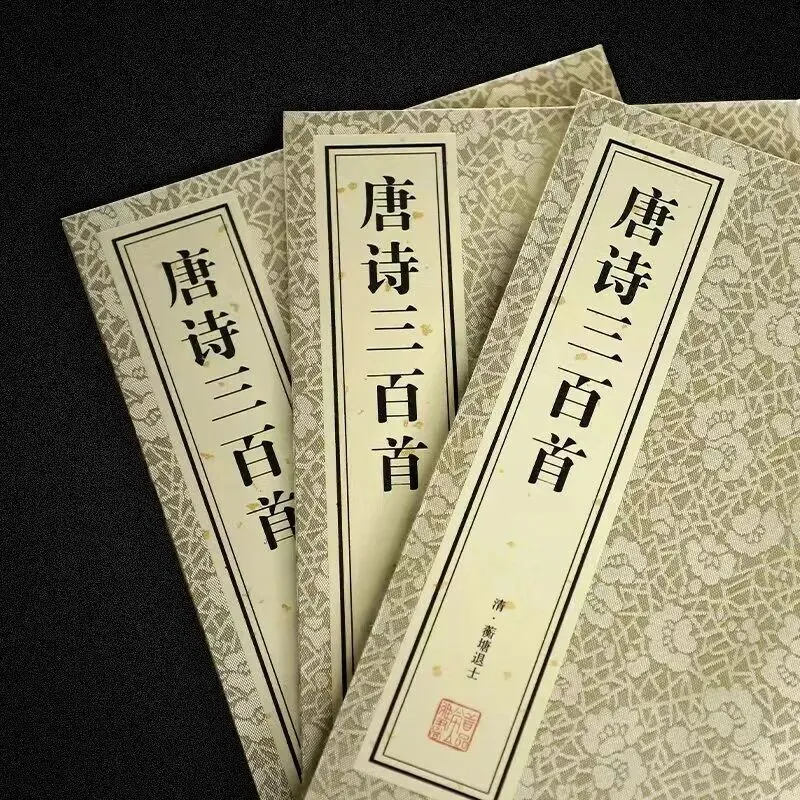 唐诗三百首
唐诗三百首
唐诗三百首
清·蘅塘退士